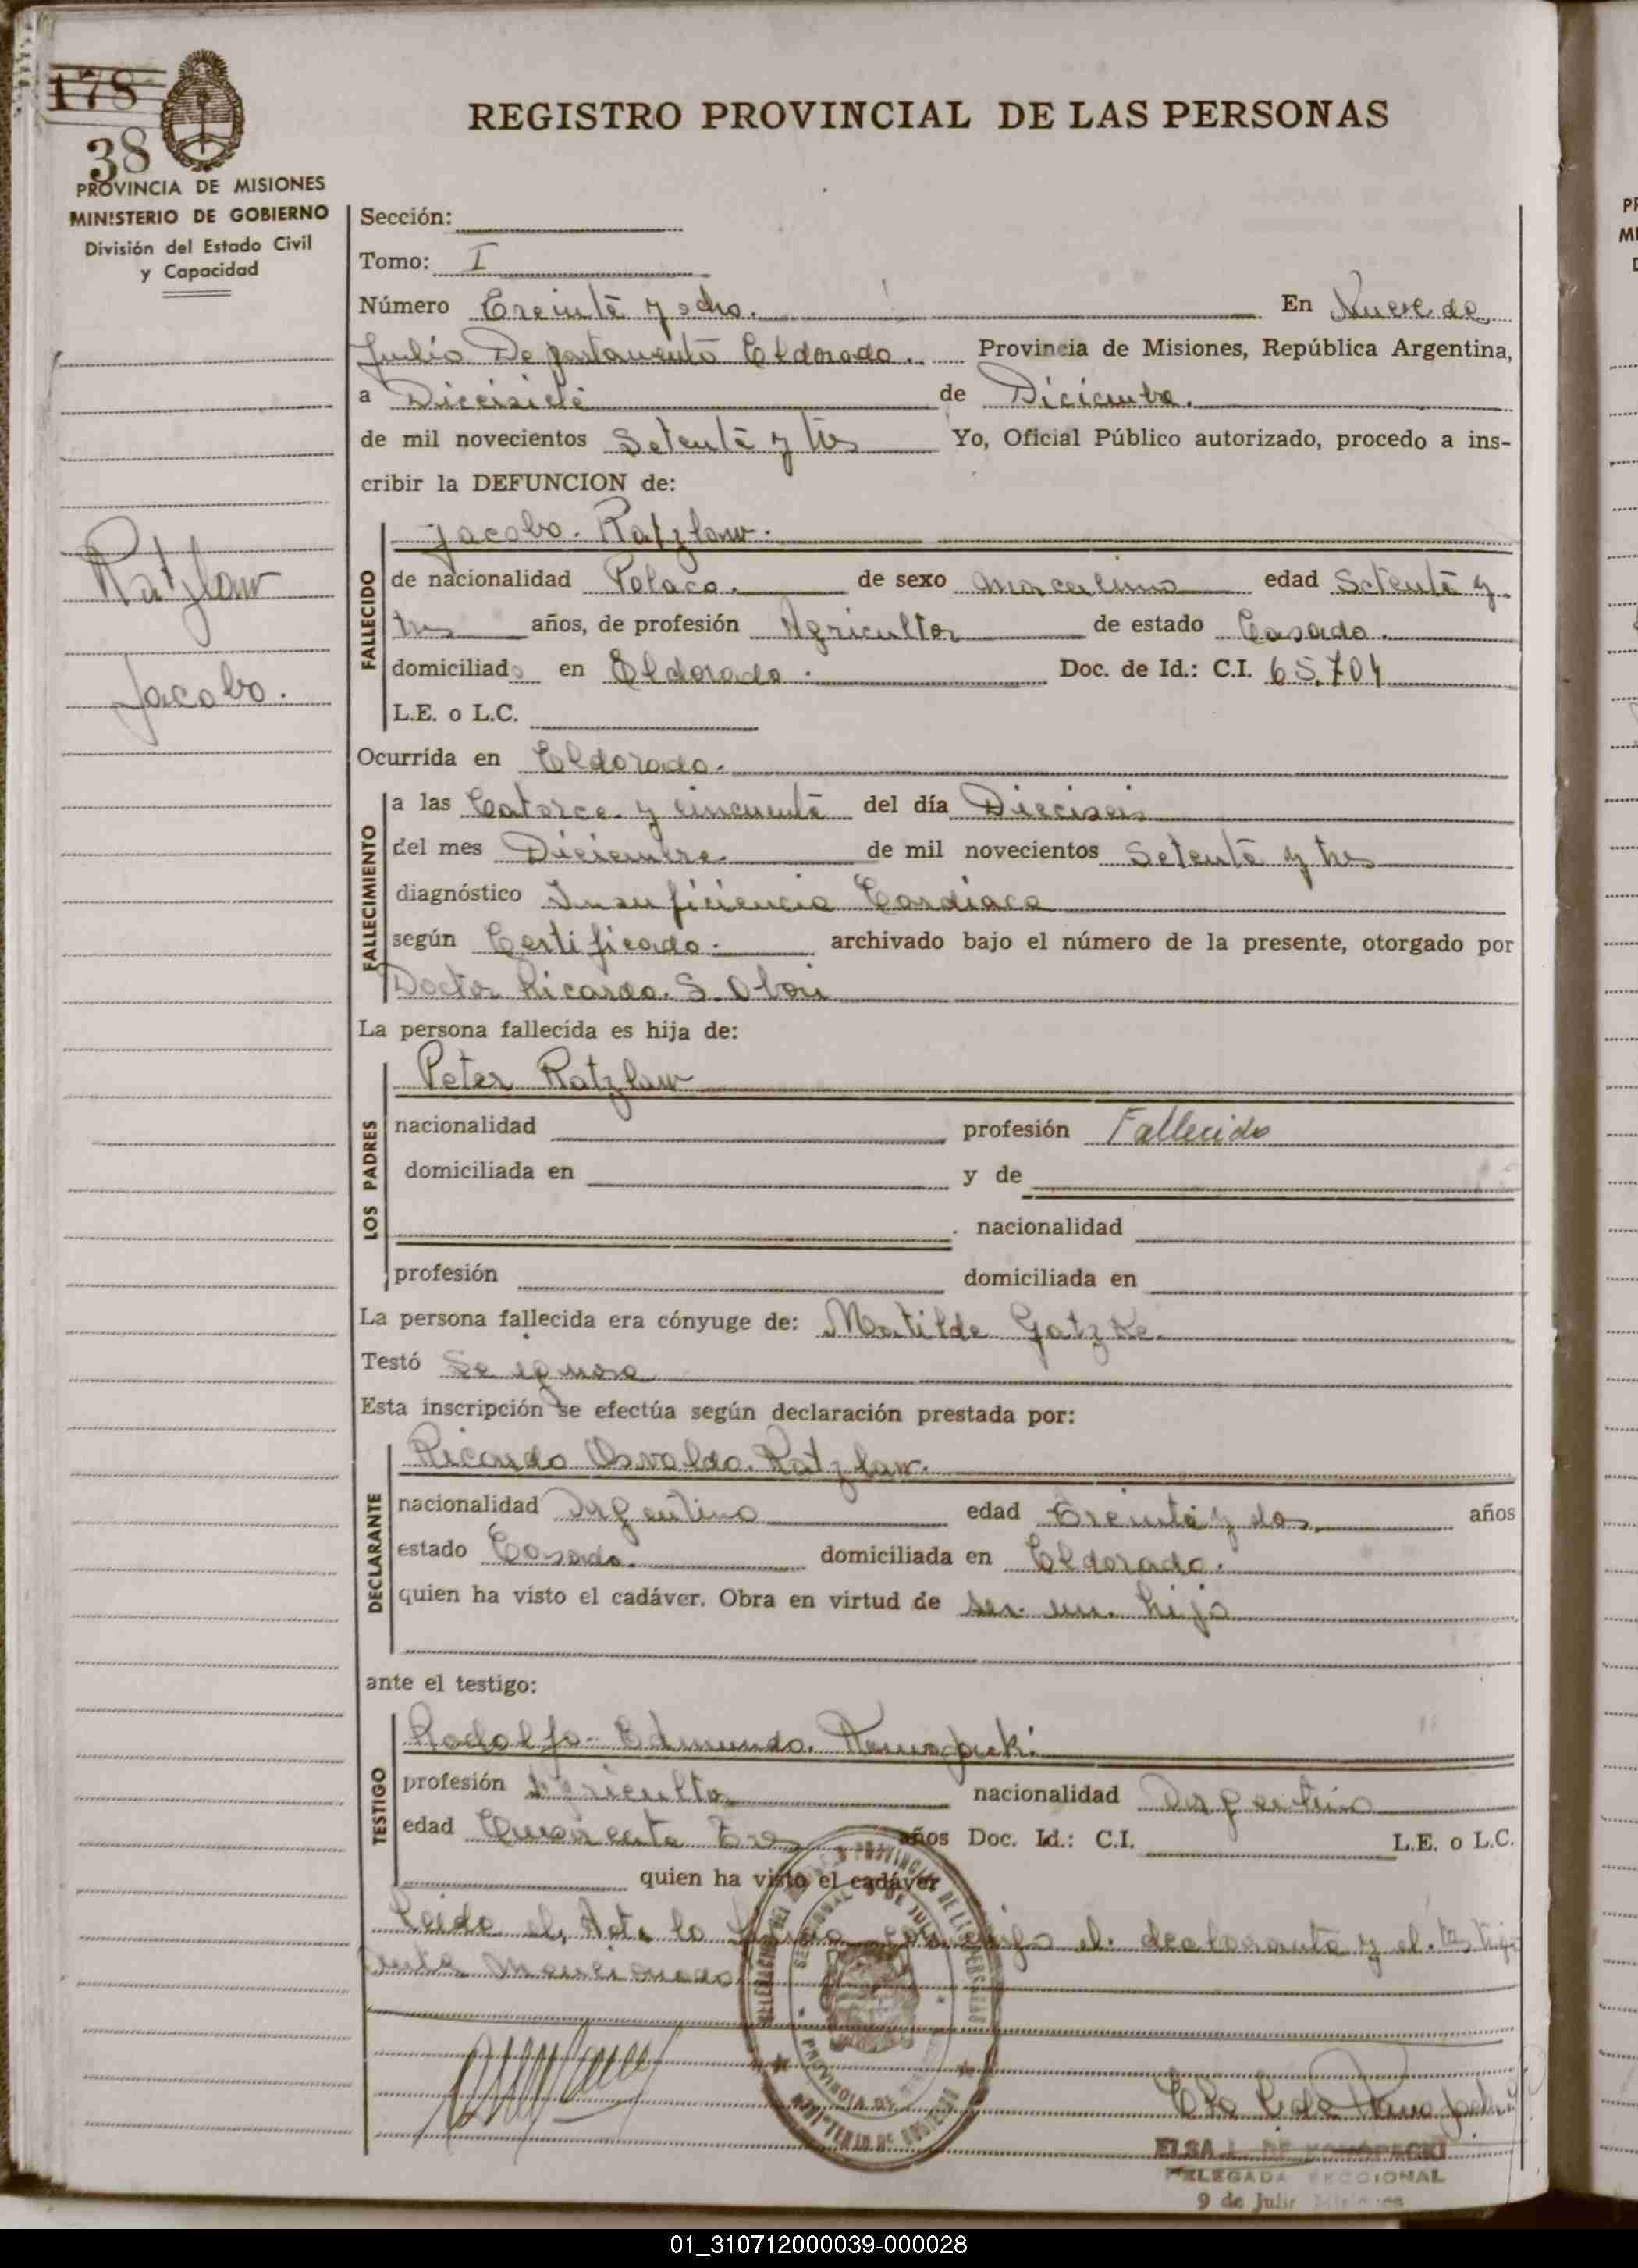 178
38
PROVINCIA DE MISIONES
MINISTERIO DE GOBIERNO
División del Estado Civil
y Capacidad
REGISTRO PROVINCIAL DE LAS PERSONAS
Sección:
Tomo: I
Número Treinta y ocho. En Nueve de
Julio Departamento Eldorado. Provincia de Misiones, República Argentina,
a Diecisiete de Diciembre.
de mil novecientos Setenta y tres Yo, Oficial Público autorizado, procedo a ins-
cribir la DEFUNCION de:
Ratzlaw
Jacobo.
FALLECIDO
Jacobo. Ratzlaw.
de nacionalidad Polaco. de sexo Masculino edad Setenta y
tres años, de profesión Agricultor de estado Casado.
domiciliado en Eldorado. Doc. de Id.: C.I. 65.704
L.E. o L.C.
Ocurrida en Eldorado.
FALLECIMIENTO
a las Catorce y cincuenta del día Dieciseis
del mes Diciembre. de mil novecientos Setenta y tres
diagnóstico Insuficiencia Cardiaca
según Certificado. archivado bajo el número de la presente, otorgado por
Doctor Ricardo. S.
La persona fallecida es hija de:
LOS PADRES
Peter Ratzlaw
nacionalidad profesión Fallecido
domiciliada en y de
nacionalidad
profesión domiciliada en
La persona fallecida era cónyuge de: Matilde Gatzke.
Testó Se ignora
Esta inscripción se efectúa según declaración prestada por:
DECLARANTE
Ricardo Osvaldo. Ratzlaw.
nacionalidad Argentino edad Treinta y dos años
estado Casado. domiciliada en Eldorado.
quien ha visto el cadáver. Obra en virtud de ser un hijo
ante el testigo:
TESTIGO
Rodolfo Edmundo. Konopacki
profesión Agricultor nacionalidad Argentino
edad Cuarenta Tres años Doc. Id.: C.I. L.E. o L.C.
quien ha visto el cadáver
Leida el Acta la firma conmigo el declarante y el testigo
mencionado
ELSA L. DE KONOPACKI
DELEGADA SECCIONAL
9 de Julio Misiones
01_310712000039-000028